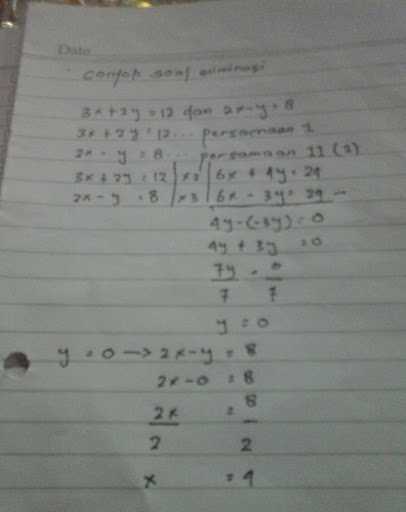 Date
contoh soal eliminasi
3x + 2y = 12 dan 2x - y = 8
3x + 2y = 12 ... persamaan 1
2x - y = 8 ... persamaan 11 (2)
3x + 2y = 12 | x2 | 6x + 4y = 24
2x - y = 8 | x3 | 6x - 3y = 24 -
4y - (-3y) = 0
4y + 3y = 0
7y = 0
7 7
y = 0
y = 0 → 2x - y = 8
2x - 0 = 8
2x = 8
2 2
x = 4